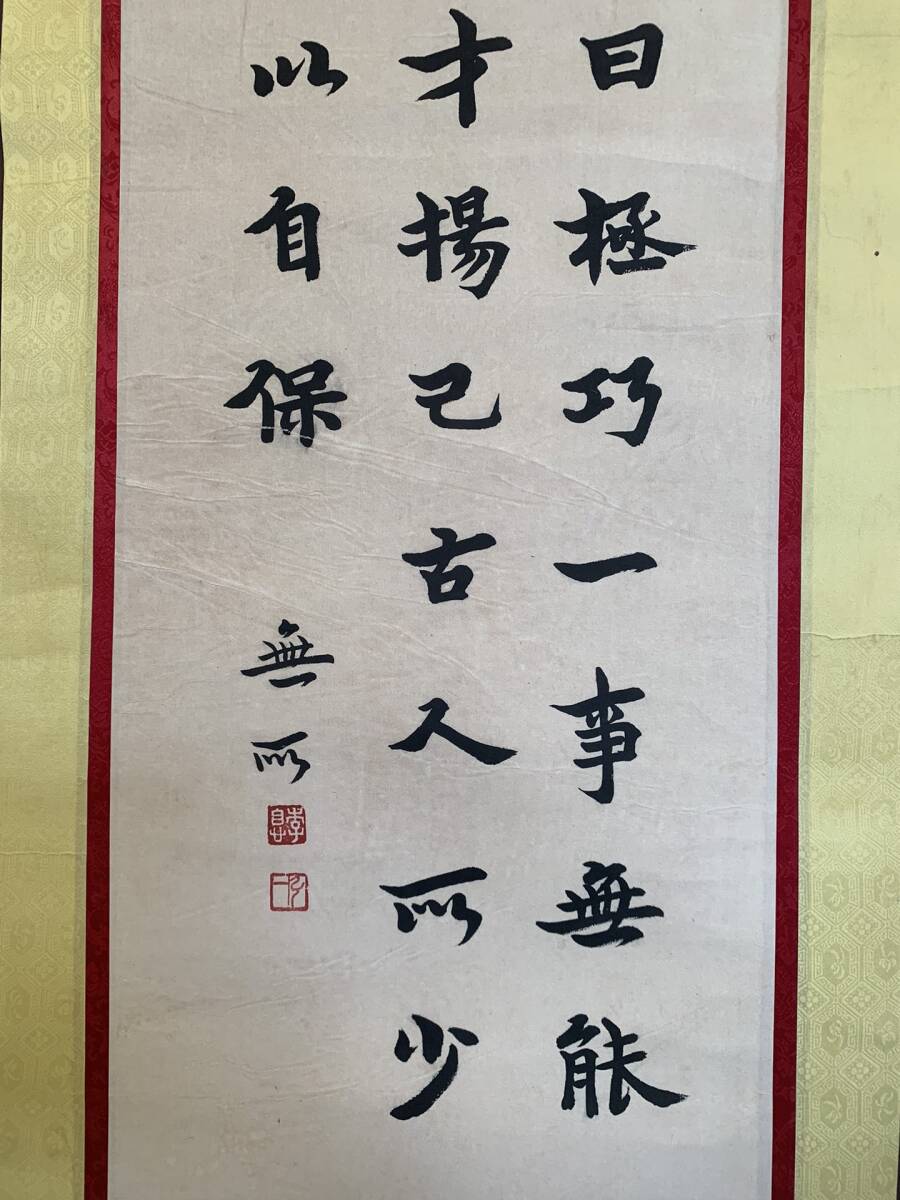 曰極巧一事無能
才揚己古人所少
以自保
無所